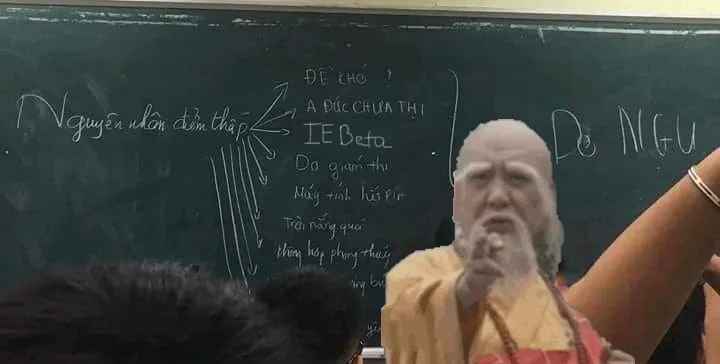 Nguyên nhân điểm thấp
ĐỀ KHÓ ?
A ĐỨC CHƯA THI
IE Beta
Do giám thị
Máy tính hết pin
Trời nắng quá
không hợp phong thủy
DO NGU